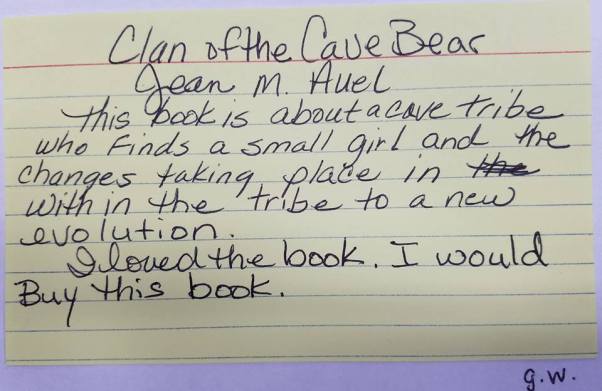 Clan of the Cave Bear
Jean M. Auel
this book is about a cave tribe
who finds a small girl and the
changes taking place in the
with in the tribe to a new
evolution.
I loved the book. I would
Buy this book.
g.w.